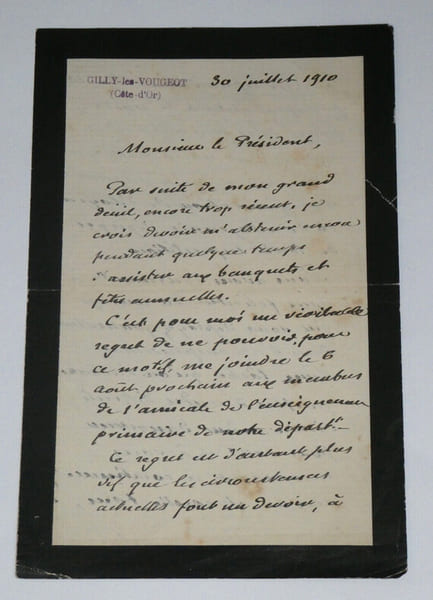 GILLY-les-VOUGEOT
(Côte-d'Or)
30 juillet 1910
Monsieur le Président,
Par suite de mon grand
deuil, encore trop récent, je
crois devoir m'abstenir encore
pendant quelque temps
d'assister aux banquets et
fêtes annuelles.
C'est pour moi un véritable
regret de ne pouvoir, pour
ce motif, me joindre le 6
août prochain aux membres
de l'amicale de l'enseignement
primaire de notre départ.t
Ce regret est d'autant plus
vif que les circonstances
actuelles font un devoir, à